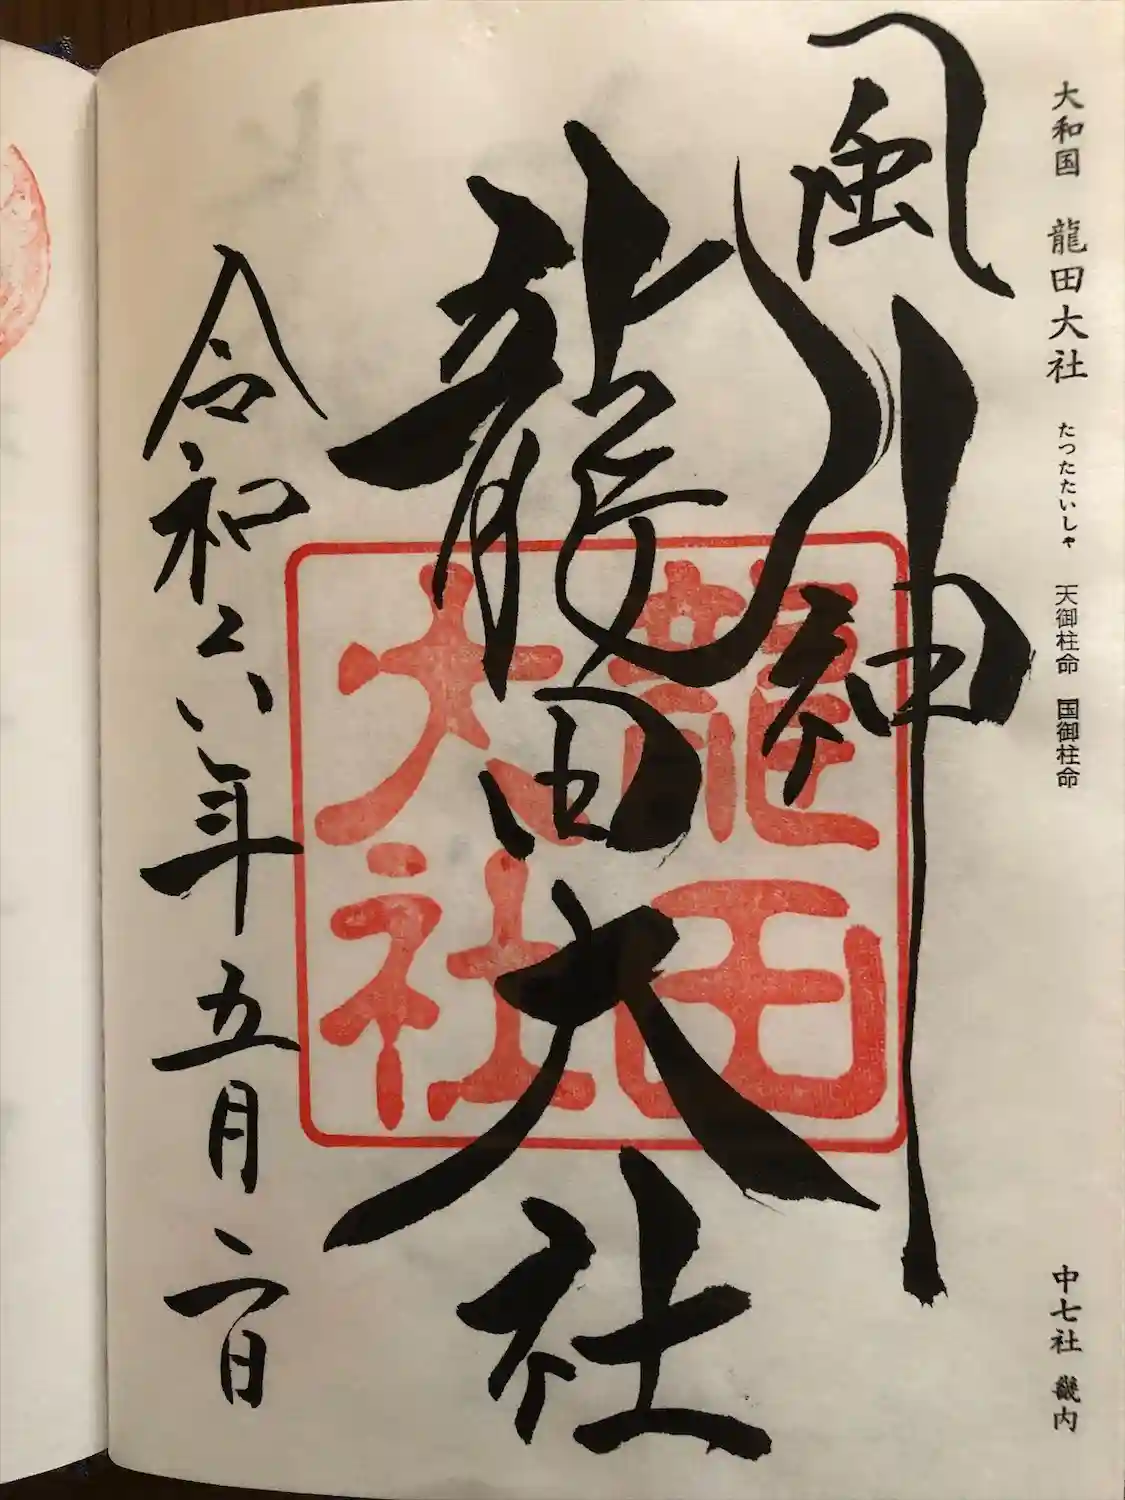 大和国　龍田大社　たつたたいしゃ　天御柱命　国御柱命　中七社　畿内
風神
龍田大社
龍田
大社
令和六年五月二日